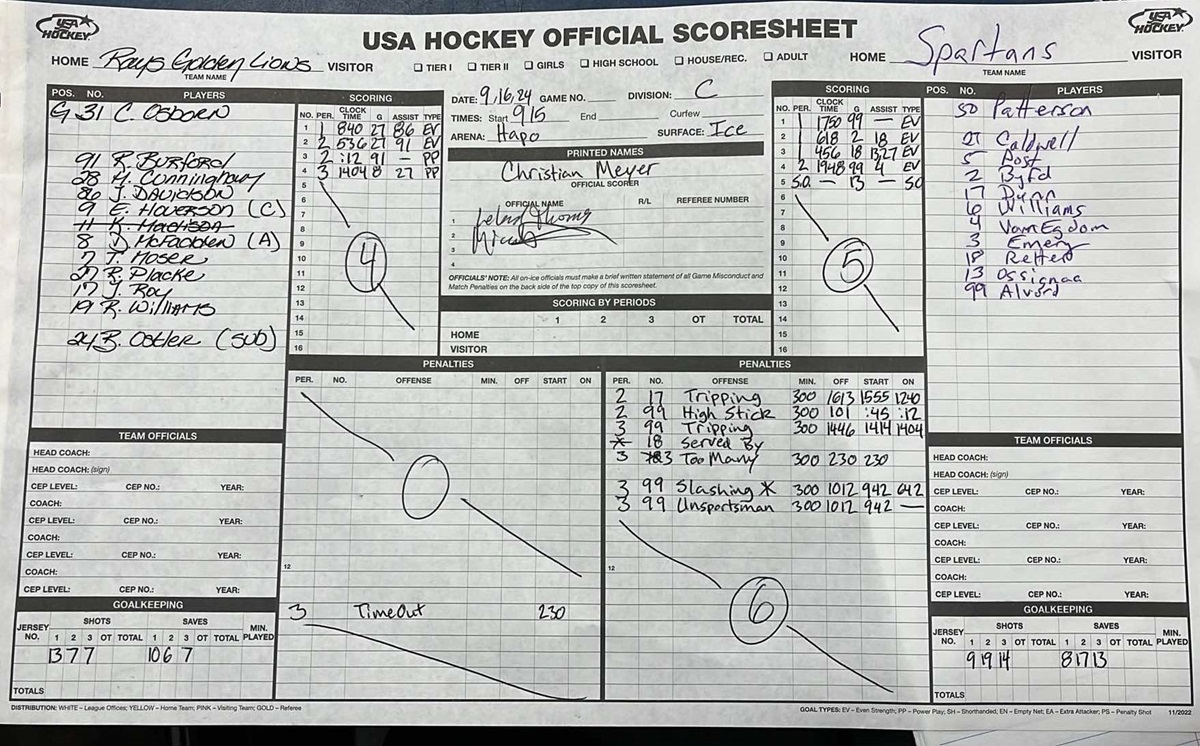 USA HOCKEY
USA HOCKEY OFFICIAL SCORESHEET
USA HOCKEY
HOME Rays Golden Lions VISITOR
TEAM NAME
☐ TIER I ☐ TIER II ☐ GIRLS ☐ HIGH SCHOOL ☐ HOUSE/REC. ☐ ADULT
HOME Spartans VISITOR
TEAM NAME
POS. NO. PLAYERS
G 31 C. Osborn
91 R. Burford
28 M. Cunningham
86 J. Davidson
9 E. Hoverson (C)
11 K. Madison
8 D. McFadden (A)
7 T. Moser
27 R. Placke
17 J. Roy
19 R. Williams
24 B. Ostler (Sub)
SCORING
NO. PER. CLOCK TIME G ASSIST TYPE
1 1 840 27 86 EV
2 2 536 27 91 EV
3 2 :12 91 — PP
4 3 1404 8 27 PP
5
6
7
8
9
10
11
12
13
14
15
16
4
DATE: 9,16,24 GAME NO. DIVISION: C
TIMES: Start 915 End Curfew
ARENA: Hapo SURFACE: Ice
PRINTED NAMES
Christian Meyer
OFFICIAL SCORER
OFFICIAL NAME R/L REFEREE NUMBER
1
2
3
4
OFFICIALS' NOTE: All on-ice officials must make a brief written statement of all Game Misconduct and
Match Penalties on the back side of the top copy of this scoresheet.
SCORING BY PERIODS
1 2 3 OT TOTAL
HOME
VISITOR
SCORING
NO. PER. CLOCK TIME G ASSIST TYPE
1 1 1750 99 — EV
2 1 618 2 18 EV
3 1 456 18 1327 EV
4 2 1948 99 4 EV
5 S.O. — 13 — SO
6
7
8
9
10
11
12
13
14
15
16
5
POS. NO. PLAYERS
50 Patterson
27 Caldwell
5 Post
2 Byrd
17 Dynn
6 Williams
4 VanEgdom
3 Emery
18
13
99 Alvord
PENALTIES
PER. NO. OFFENSE MIN. OFF START ON
0
12
3 TimeOut 230
PENALTIES
PER. NO. OFFENSE MIN. OFF START ON
2 17 Tripping 300 1613 1555 1240
2 99 High Stick 300 101 :45 :12
3 99 Tripping 300 1446 1414 1404
* 18 Served By
3 3 Too Many 300 230 230
3 99 Slashing * 300 1012 942 642
3 99 Unsportsman 300 1012 942 —
12
6
TEAM OFFICIALS
HEAD COACH:
HEAD COACH: (sign)
CEP LEVEL: CEP NO.: YEAR:
COACH:
CEP LEVEL: CEP NO.: YEAR:
COACH:
CEP LEVEL: CEP NO.: YEAR:
COACH:
CEP LEVEL: CEP NO.: YEAR:
GOALKEEPING
JERSEY NO. SHOTS SAVES MIN. PLAYED
1 2 3 OT TOTAL 1 2 3 OT TOTAL
13 7 7 10 6 7
TOTALS
TEAM OFFICIALS
HEAD COACH:
HEAD COACH: (sign)
CEP LEVEL: CEP NO.: YEAR:
COACH:
CEP LEVEL: CEP NO.: YEAR:
COACH:
CEP LEVEL: CEP NO.: YEAR:
COACH:
CEP LEVEL: CEP NO.: YEAR:
GOALKEEPING
JERSEY NO. SHOTS SAVES MIN. PLAYED
1 2 3 OT TOTAL 1 2 3 OT TOTAL
9 19 14 8 17 13
TOTALS
DISTRIBUTION: WHITE – League Offices; YELLOW – Home Team; PINK – Visiting Team; GOLD – Referee
GOAL TYPES: EV – Even Strength; PP – Power Play; SH – Shorthanded; EN – Empty Net; EA – Extra Attacker; PS – Penalty Shot 11/2022